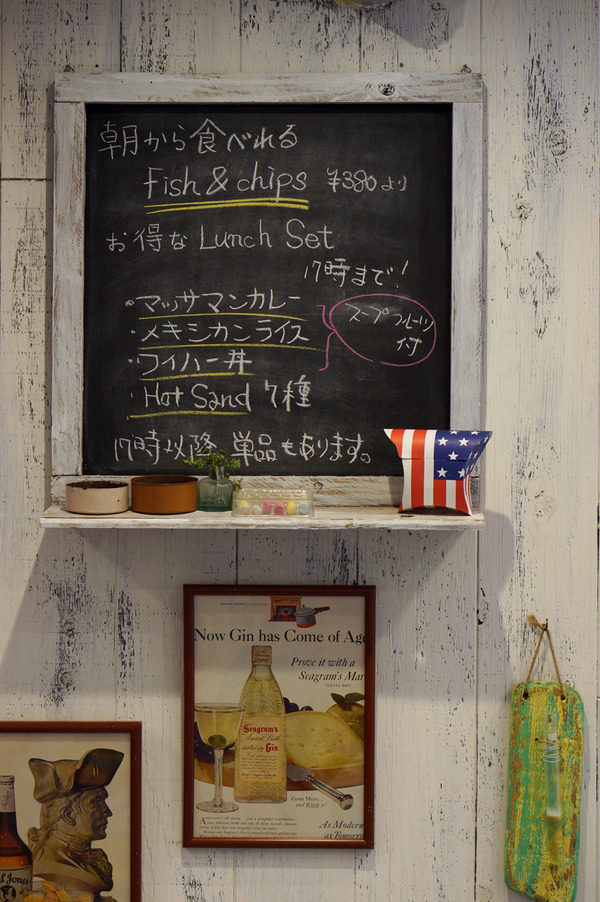 朝から食べれる
Fish & chips ¥380より
お得な Lunch Set
17時まで!
・マッサマンカレー
・メキシカンライス
・ワイハー丼
・Hot Sand 7種
スープ フルーツ
付
17時以降 単品もあります。
Now Gin has Come of Age
Prove it with a
Seagram's Mar
Seagram's
Ancient Bottle
distilled dry
Gin
As Modern
as Tomorrow
l Jones